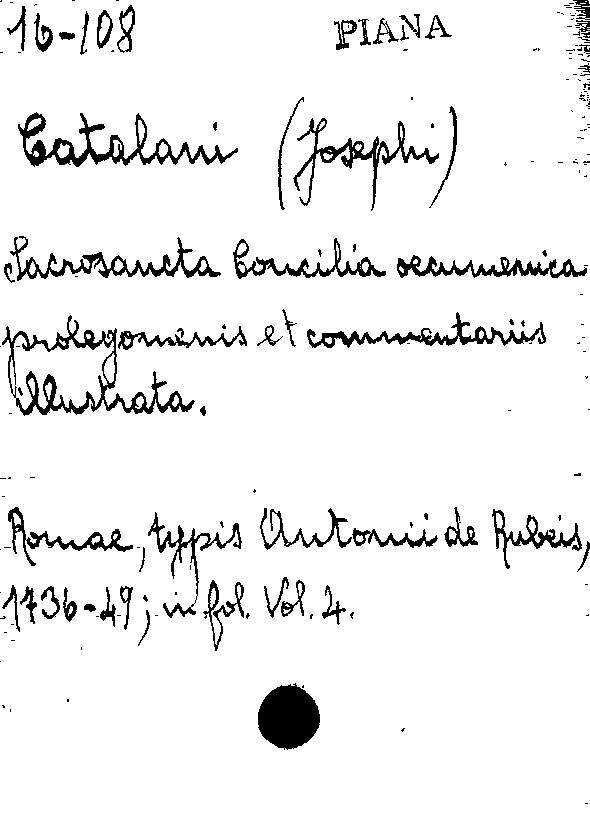 16-108 PIANA
Catalani (Josephi)
Sacrosancta Concilia oecumenica
prolegomenis et commentariis
illustrata.
Romae, typis Antonii de Rubeis,
1736-49; in fol. Vol. 4.